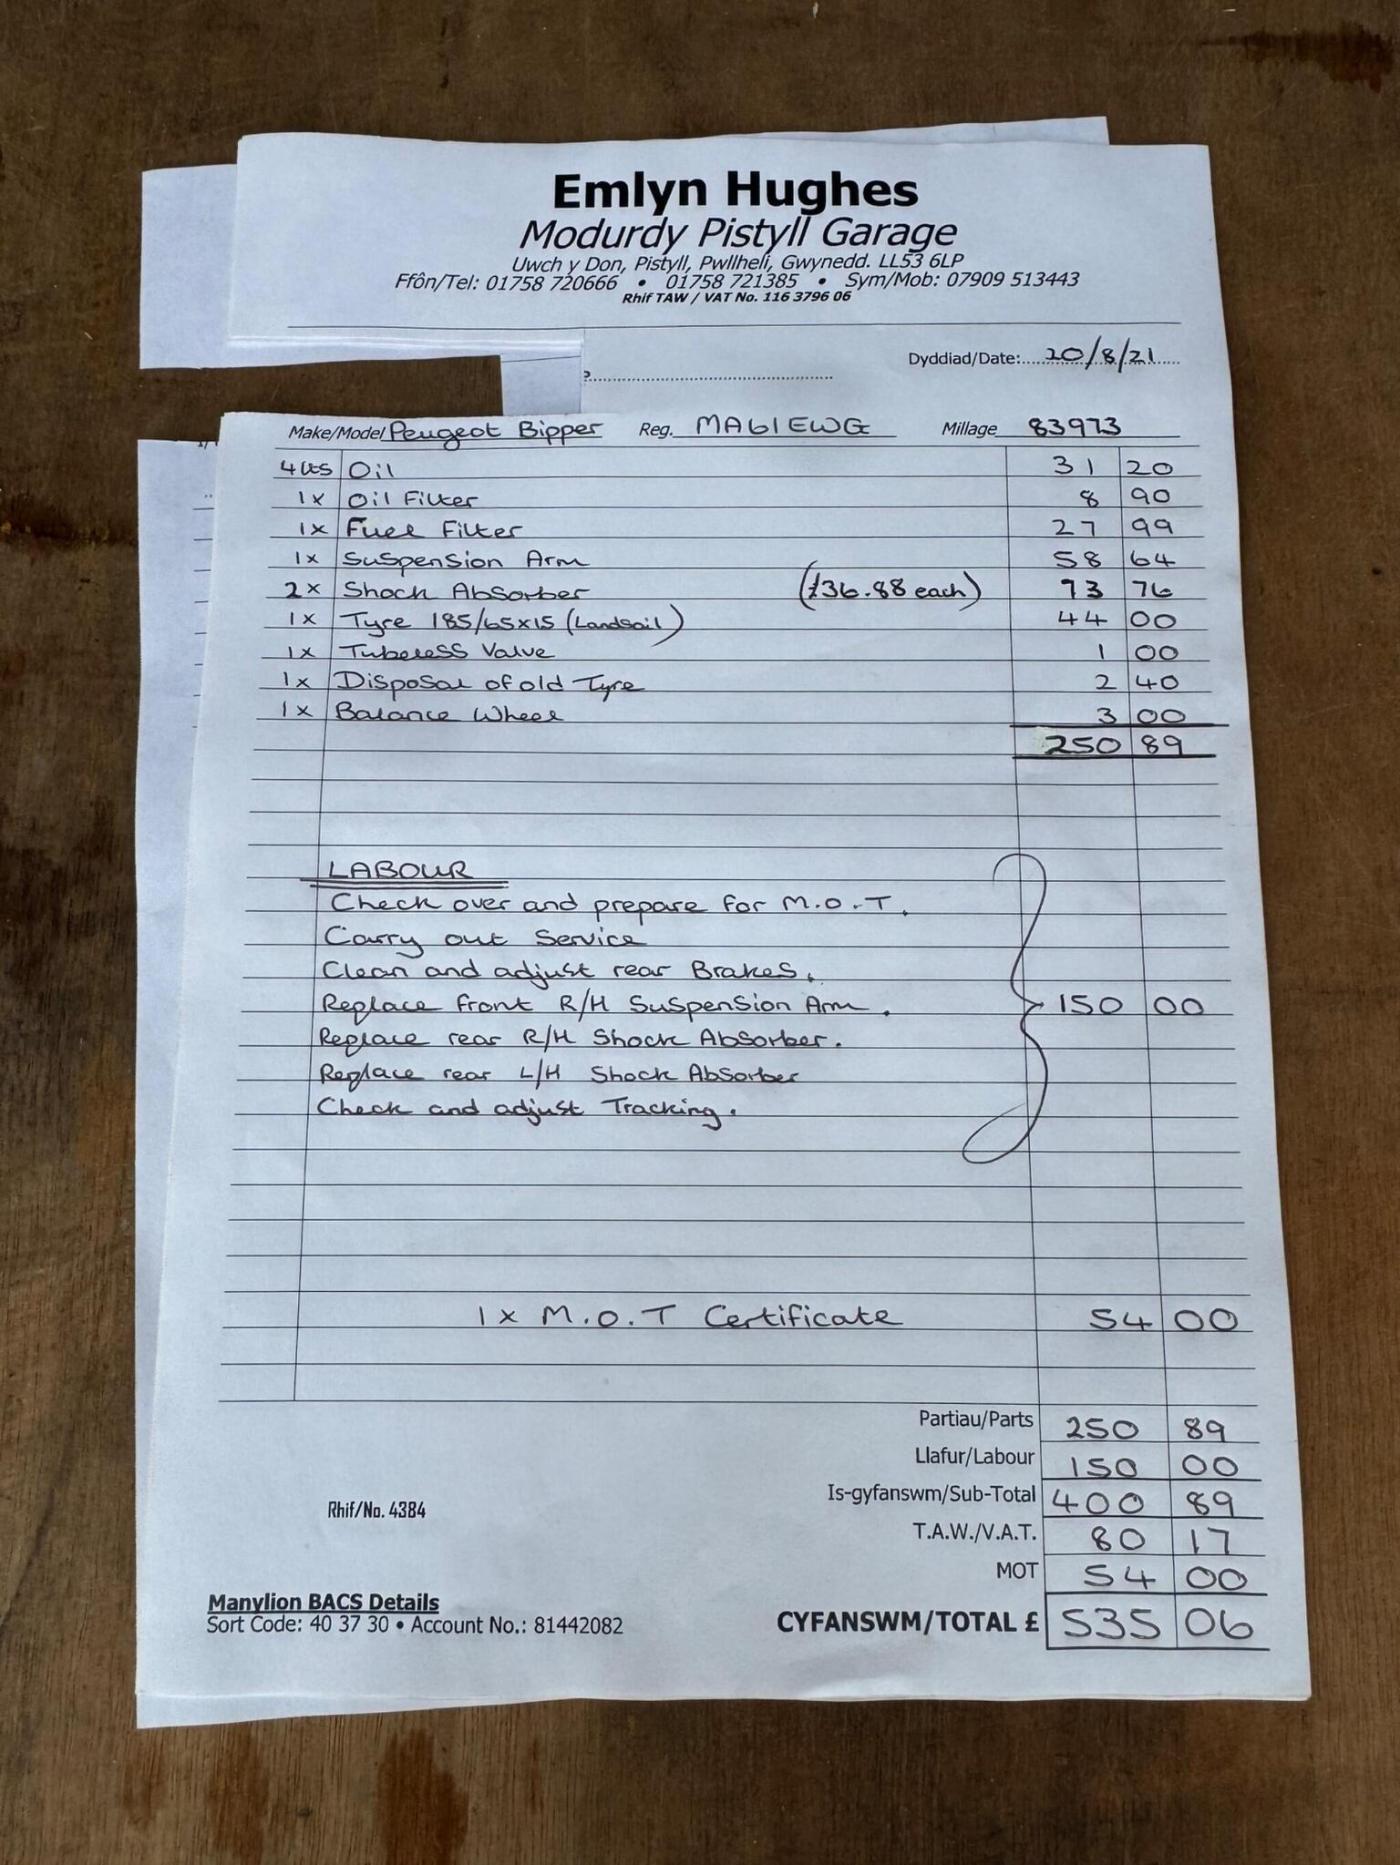 Emlyn Hughes
Modurdy Pistyll Garage
Uwch y Don, Pistyll, Pwllheli, Gwynedd. LL53 6LP
Ffôn/Tel: 01758 720666 • 01758 721385 • Sym/Mob: 07909 513443
Rhif TAW / VAT No. 116 3796 06
Dyddiad/Date: 20/8/21
Make/Model Peugeot Bipper Reg. MA61EWG Millage 83973
4Lts Oil 31 20
1x Oil Filter 8 90
1x Fuel Filter 27 99
1x Suspension Arm 58 64
2x Shock Absorber (£36.88 each) 73 76
1x Tyre 185/65x15 (Landsail) 44 00
1x Tubeless Valve 1 00
1x Disposal of old Tyre 2 40
1x Balance Wheel 3 00
250 89
LABOUR
Check over and prepare for M.O.T.
Carry out Service
Clean and adjust rear Brakes.
Replace front R/H Suspension Arm. 150 00
Replace rear R/H Shock Absorber.
Replace rear L/H Shock Absorber
Check and adjust Tracking.
1x M.O.T Certificate 54 00
Partiau/Parts 250 89
Llafur/Labour 150 00
Is-gyfanswm/Sub-Total 400 89
Rhif/No. 4384
T.A.W./V.A.T. 80 17
MOT 54 00
Manylion BACS Details
Sort Code: 40 37 30 • Account No.: 81442082
CYFANSWM/TOTAL £ 535 06